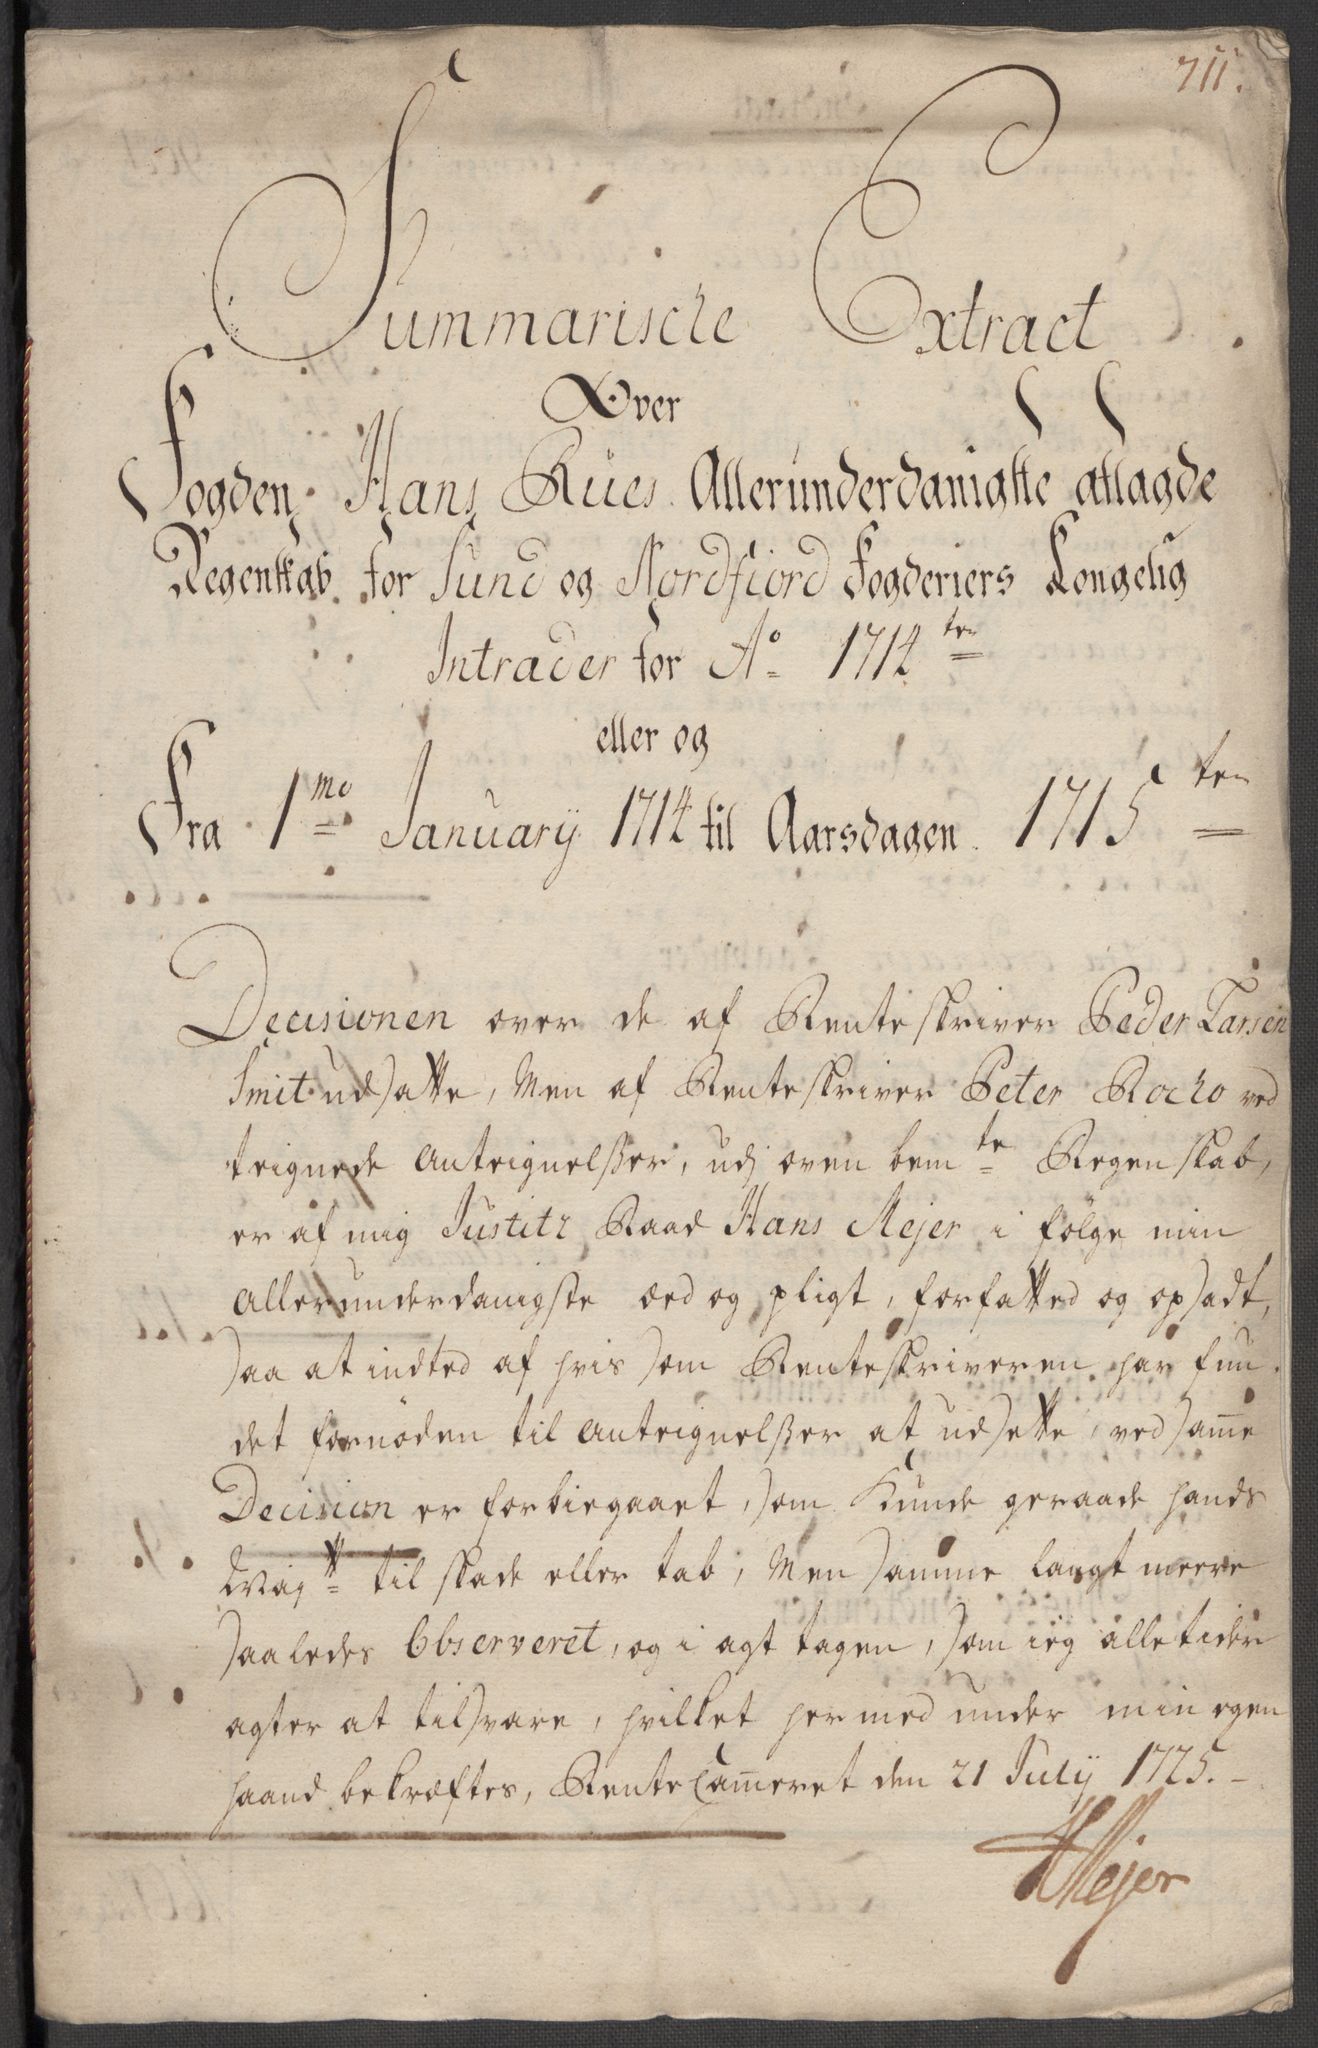 711.
Summarische Extract
Over
Fogden Hans Rues Allerunderdanigste aflagde
Regenskab for Sund og Nordfiord Fogderiers Kongelig
Intrader for Aº 1714ten
eller og
Fra 1mo January 1714 til Aarsdagen 1715ten
Decisionen over de af Renteskriver Peder Larsen
Smit udsatte, Men af Renteskriver Peter Rocho ved
teignede Anteignelsser, udj oven bemte Regenskab,
er af mig Justitz Raad Hans Mejer i følge min
allerunderdanigste æed og pligt, forfatted og opsadt,
saa at indted af hvis som Renteskriveren har fun-
det fornøden til Anteignelsser at udsette, ved same
Decision er forbiegaaet, som Kunde geraade hands
Majtt til skade eller tab, Men samme langt meere
saaledes Observeret, og i agt tagen, som ieg alletider
agter at tilsvare, hvilket hermed under min egen
haand bekræftes, RenteCameret den 21 July 1725.
HMejer